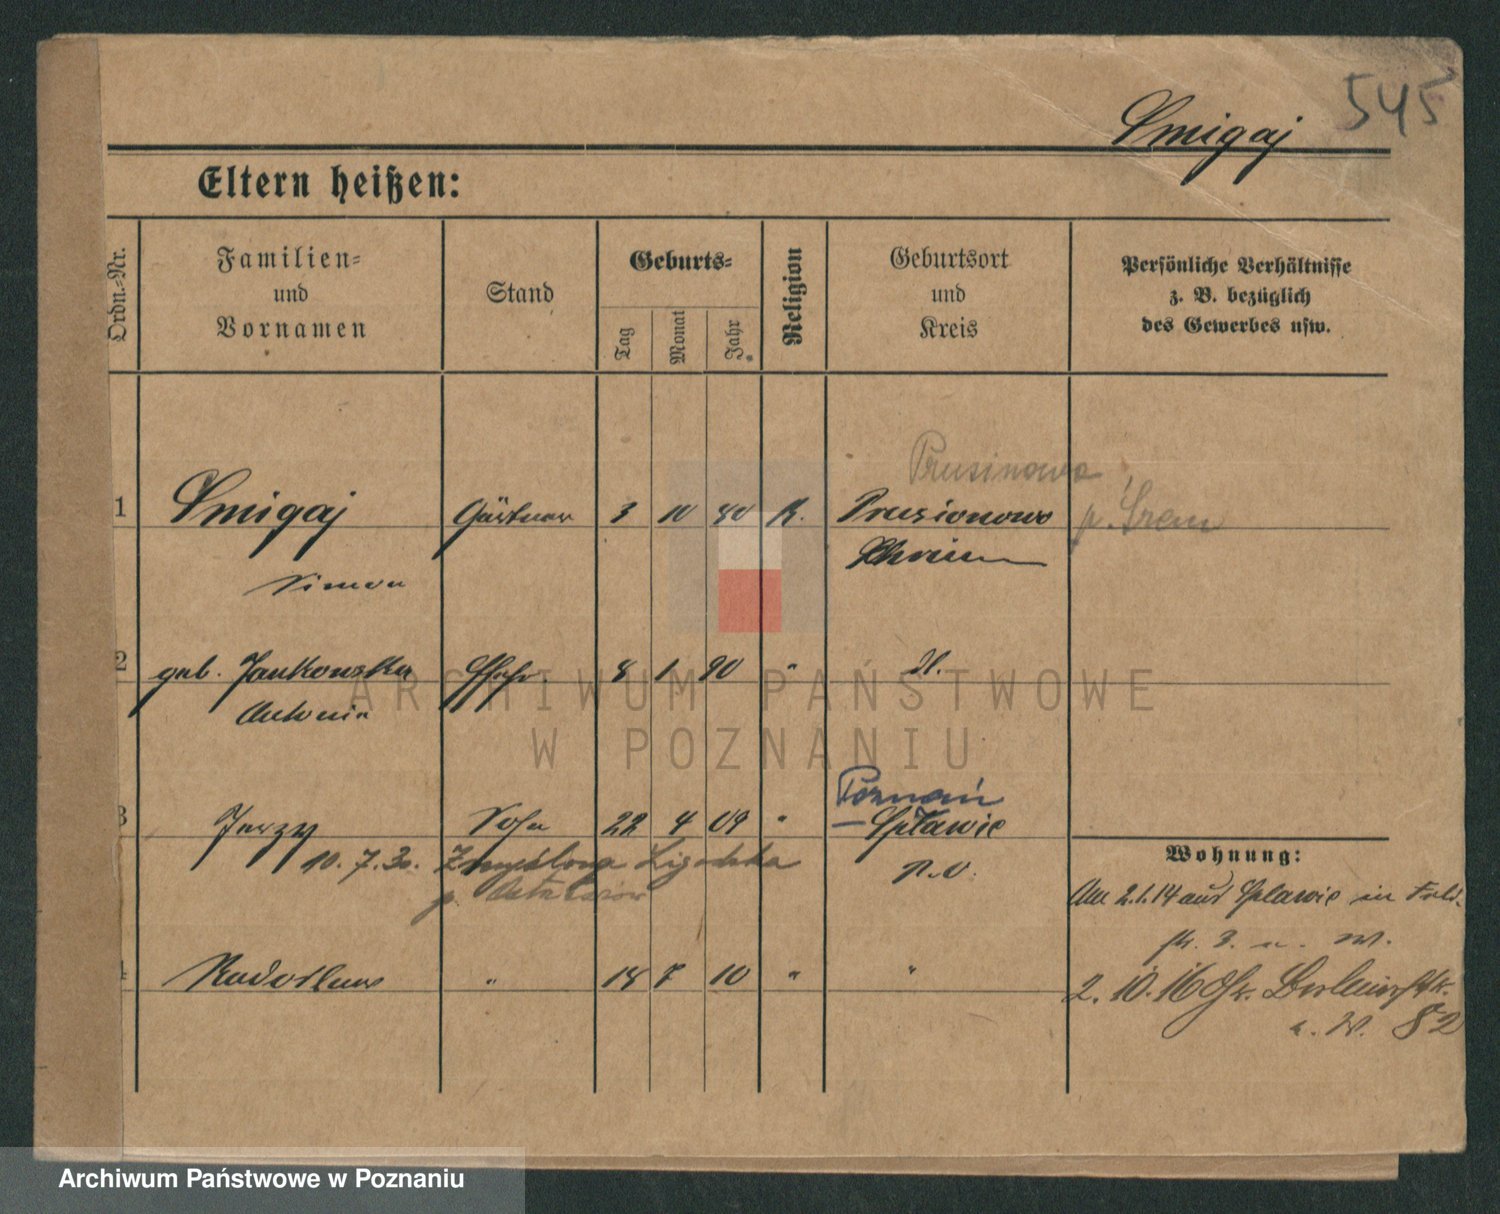 545
Smigaj
Eltern heißen:
Ordn.-Nr.
Familien-
und
Vornamen
Stand
Geburts-
Tag
Monat
Jahr
Religion
Geburtsort
und
Kreis
Persönliche Verhältnisse
z. B. bezüglich
des Gewerbes usw.
Prusinowo
1 Smigaj Gärtner 3 10 80 K. Prusionowo p. Śrem
Simon Schrimm
2 geb. Jankowska Ehefr. 8 1 90 " "
Antonie
Poznań
3 Jerzy Sohn 22 4 09 " Spławie
10. 7. 30. Zmyślona Ligodzka P.O.
p.
Wohnung:
Am 2.1.14 aus Splawie in Feld-
str. 3. u. W.
4 Radoslaus " 18 7 10 " "
2. 10. 16
u. W. 82
ARCHIWUM PAŃSTWOWE
W POZNANIU
Archiwum Państwowe w Poznaniu